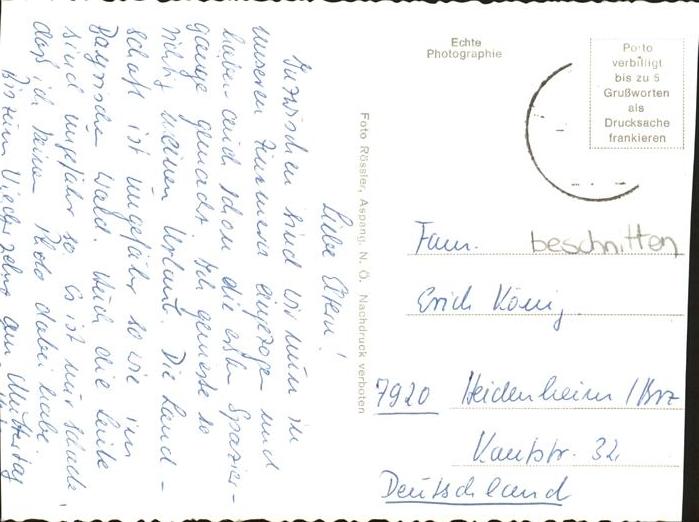 Liebe Eltern!
Inzwischen sind wir nun in
unseren Zimmern eingezogen und
haben auch schon die ersten Spazier-
gänge gemacht. Ich genieße so
richtig meinen Urlaub. Die Land-
schaft ist ungefähr so wie im
Bayrischen Wald. Auch die Leute
sind ungefähr so. Es ist nur schade,
daß ich keinen Photo dabei habe.
Bis zum Wiedersehn am Muttertag
Foto Rössler, Aspang, N. Ö. Nachdruck verboten
Echte
Photographie
Porto
verbilligt
bis zu 5
Grußworten
als
Drucksache
frankieren
Fam. beschnitten
Erich König
7920 Heidenheim / Brz
Kantstr. 32
Deutschland